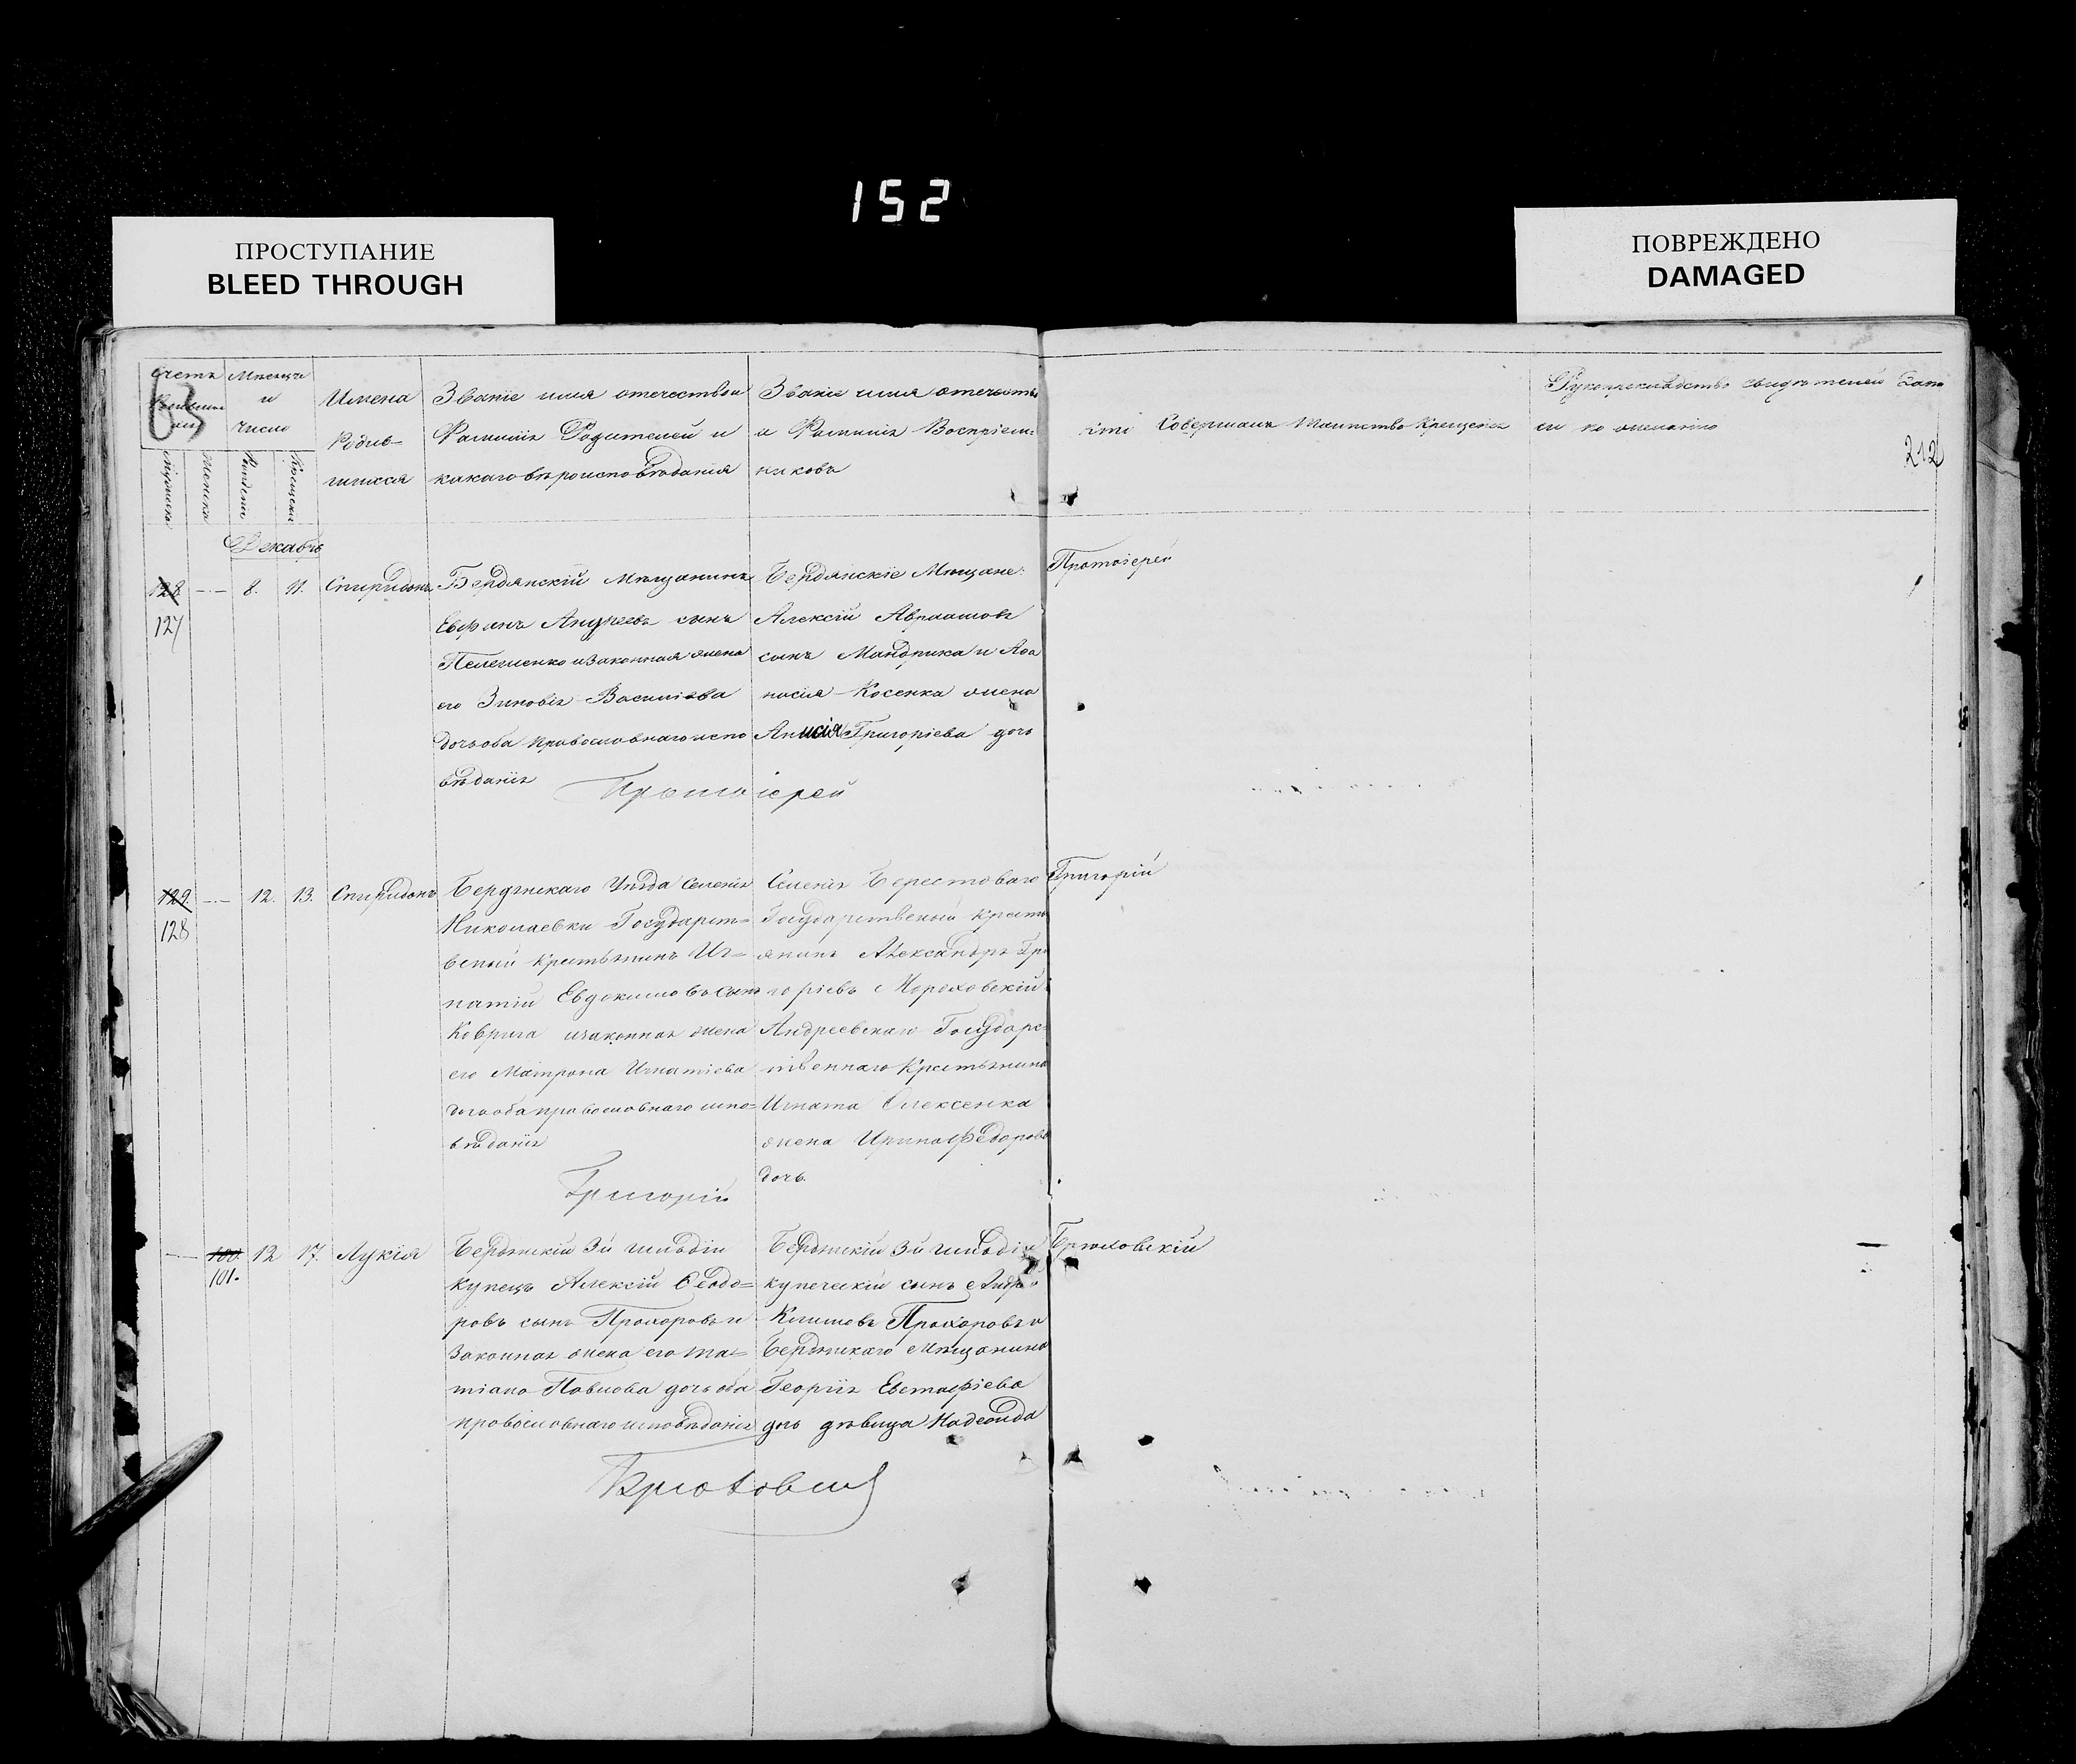 152
ПРОСТУПАНИЕ
BLEED THROUGH
ПОВРЕЖДЕНО
DAMAGED
Счетъ
Мѣсяцъ
и
число
Имена
Родив-
шихся
Званіе имя отечество и
Фамилія Родителей и
какаго вѣроисповѣданія
Званіе имя отечество
и Фамилія Воспріем-
никовъ
Совершалъ Таинство Крещенія
Рукоприкладство свидѣтелей
212
Декабрь
128
127
8.
11.
Спиридонъ
Бердянскій Мѣщанинъ
Андреевъ сынъ
и законная жена
его Зиновія Василіева
дочь оба православнаго испо
вѣданія
Бердянскіе Мѣщане:
Алексій Авраамовъ
сынъ Мандрика и Аѳа
насія Косенка жена
Анисія Григоріева дочь
Протоіерей
Протоіерей
129
128
12.
13.
Спиридонъ
Бердянскаго Уѣзда Селенія
Николаевки Государст-
веный крестьянинъ Иг-
натій Евдокимовъ сынъ
Коврига и законная жена
его Матрона Игнатіева
дочь оба православнаго испо-
вѣданія
Селенія Берестоваго
Государственый крест
янинъ Александръ Гри
горіевъ Мороховскій
Андреевскаго Государс-
твеннаго Крестьянина
Игната Олексенка
жена Ирина Федорова
дочь
Григорій
Григорій
100.
101.
12
17.
Лукія
Бердянскій 3й гильдіи
купецъ Алексій Ѳеодо-
ровъ сынъ Прохоровъ и
Законная жена его Та-
тіана Павлова дочь оба
православнаго исповѣданія
Бердянскій 3й гильдіи
купеческій сынъ Андрей
Климовъ Прохоровъ и
Бердянскаго Мѣщанина
Георгія Евстафіева
дочь дѣвица Надежда
Брюховскій